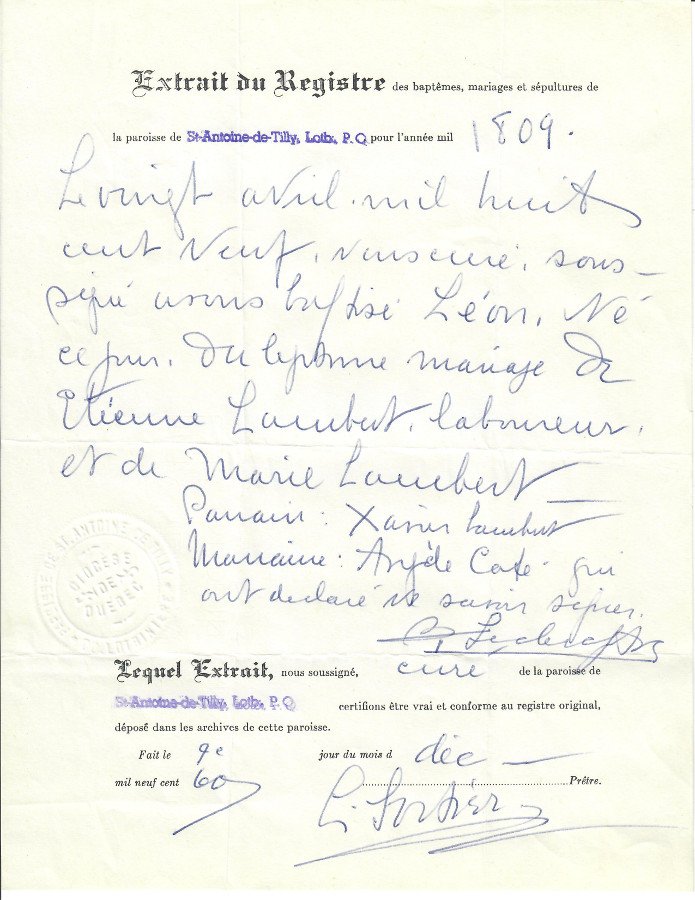 Extrait du Registre des baptêmes, mariages et sépultures de
la paroisse de St-Antoine-de-Tilly, Lotb., P. Q. pour l'année mil 1809.
Le vingt avril mil huit
cent neuf, nous curé, sous-
signé avons baptisé Léon, Né
ce jour, du légitime mariage de
Etienne Lambert, laboureur,
et de Marie Lambert
Parrain : Xavier Lambert
Marraine : Angèle Coté qui
ont declaré ne savoir signer.
Lequel Extrait, nous soussigné, curé de la paroisse de
St-Antoine-de-Tilly, Lotb., P. Q. certifions être vrai et conforme au registre original,
déposé dans les archives de cette paroisse.
Fait le 9e jour du mois d déc
mil neuf cent 60 Prêtre.